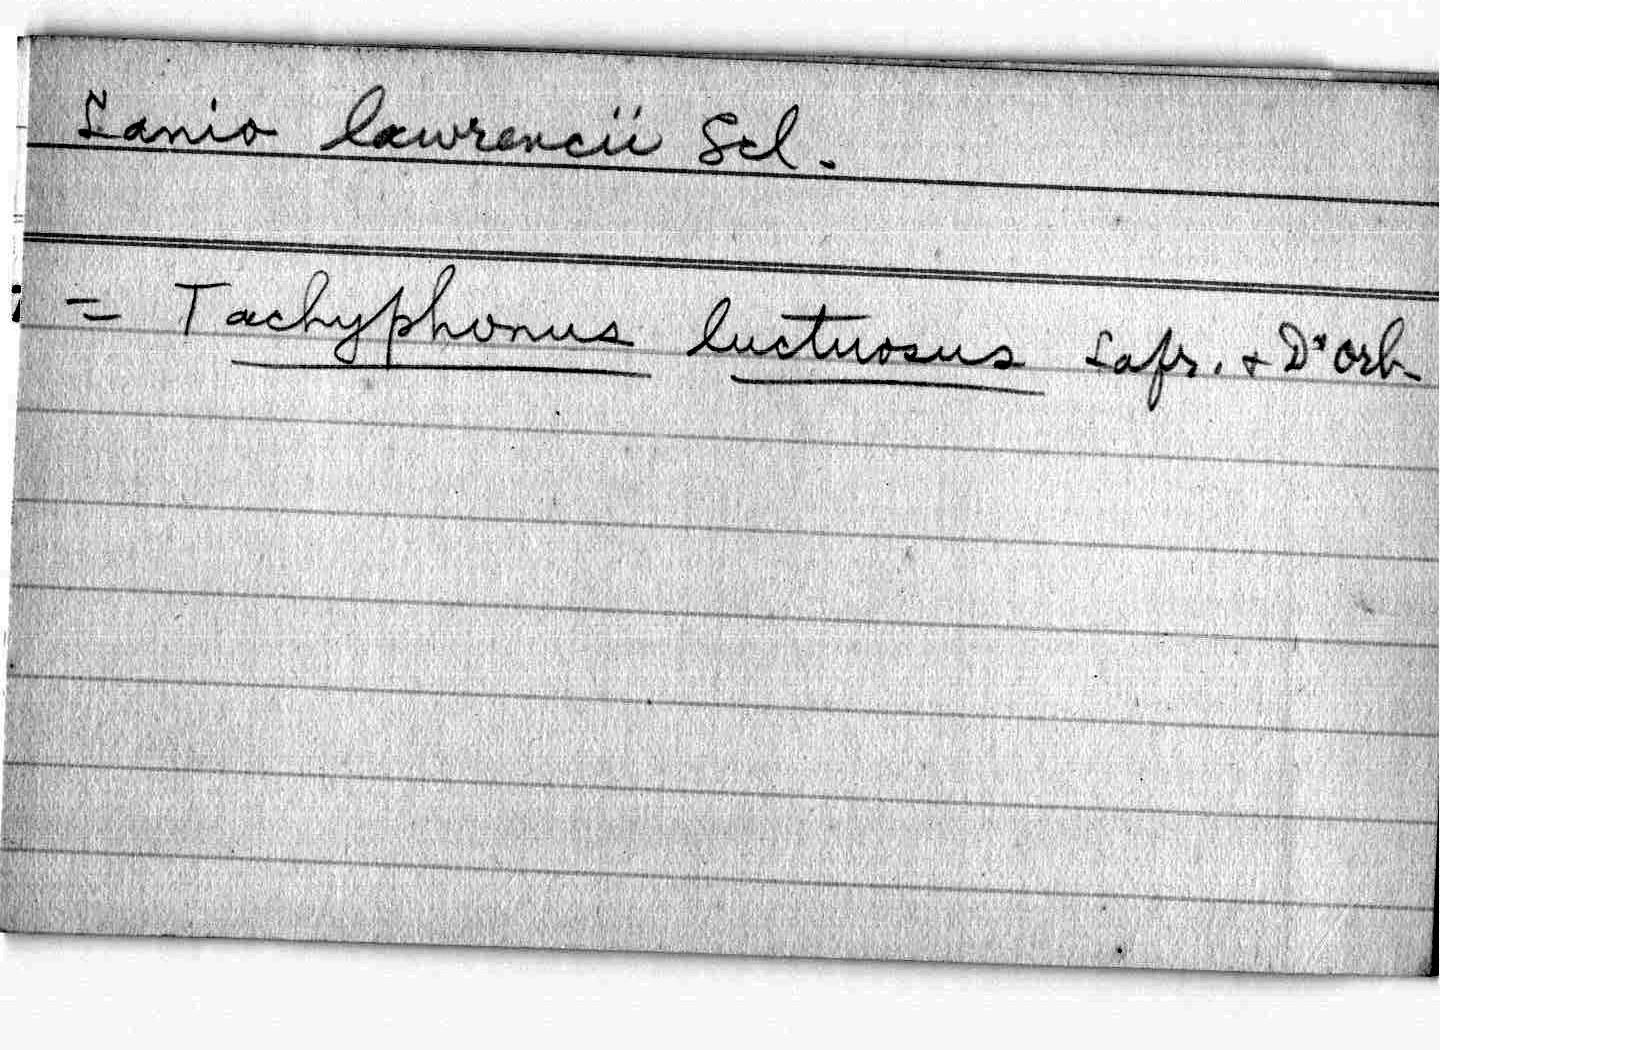 Lanio lawrencii Scl.
= Tachyphonus luctuosus Lafr. + D'orb